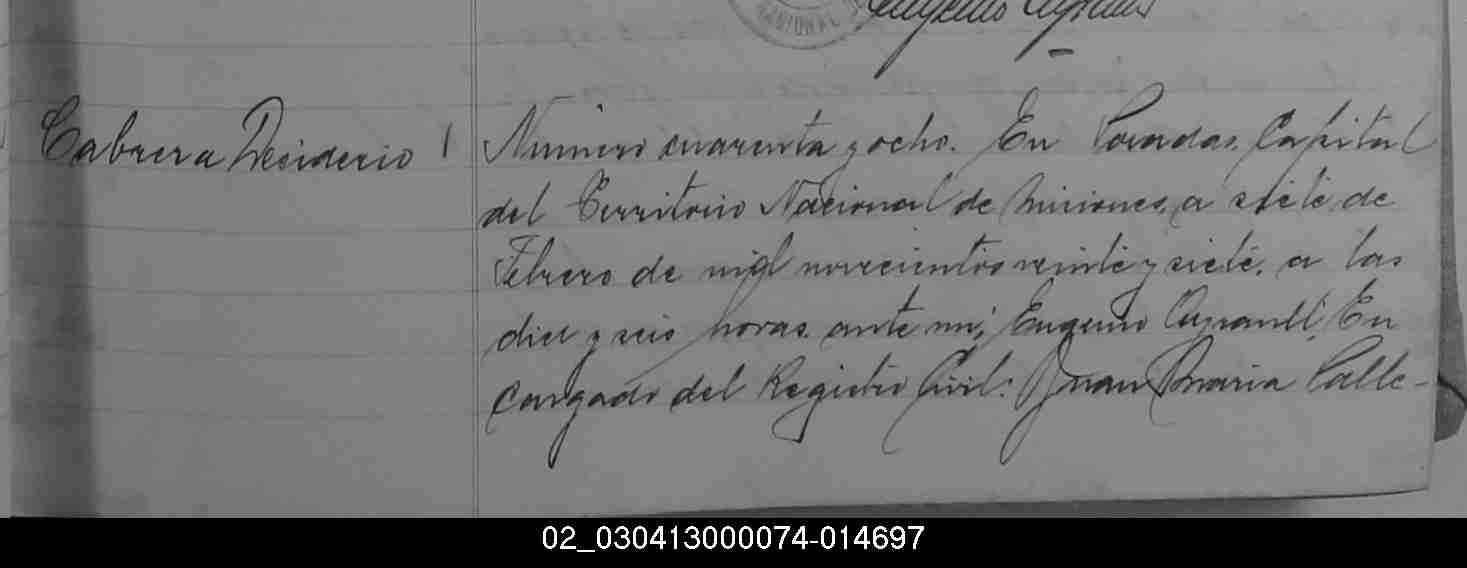 NACIONAL
Eugenio Ayrault
Cabrera Desiderio
Número cuarenta y ocho. En Posadas, Capital
del Territorio Nacional de Misiones, a siete de
Febrero de mil novecientos veinte y siete, a las
diez y seis horas, ante mi, Eugenio Ayrault, En
cargado del Registro Civil: Juan Maria Valle-
02_030413000074-014697